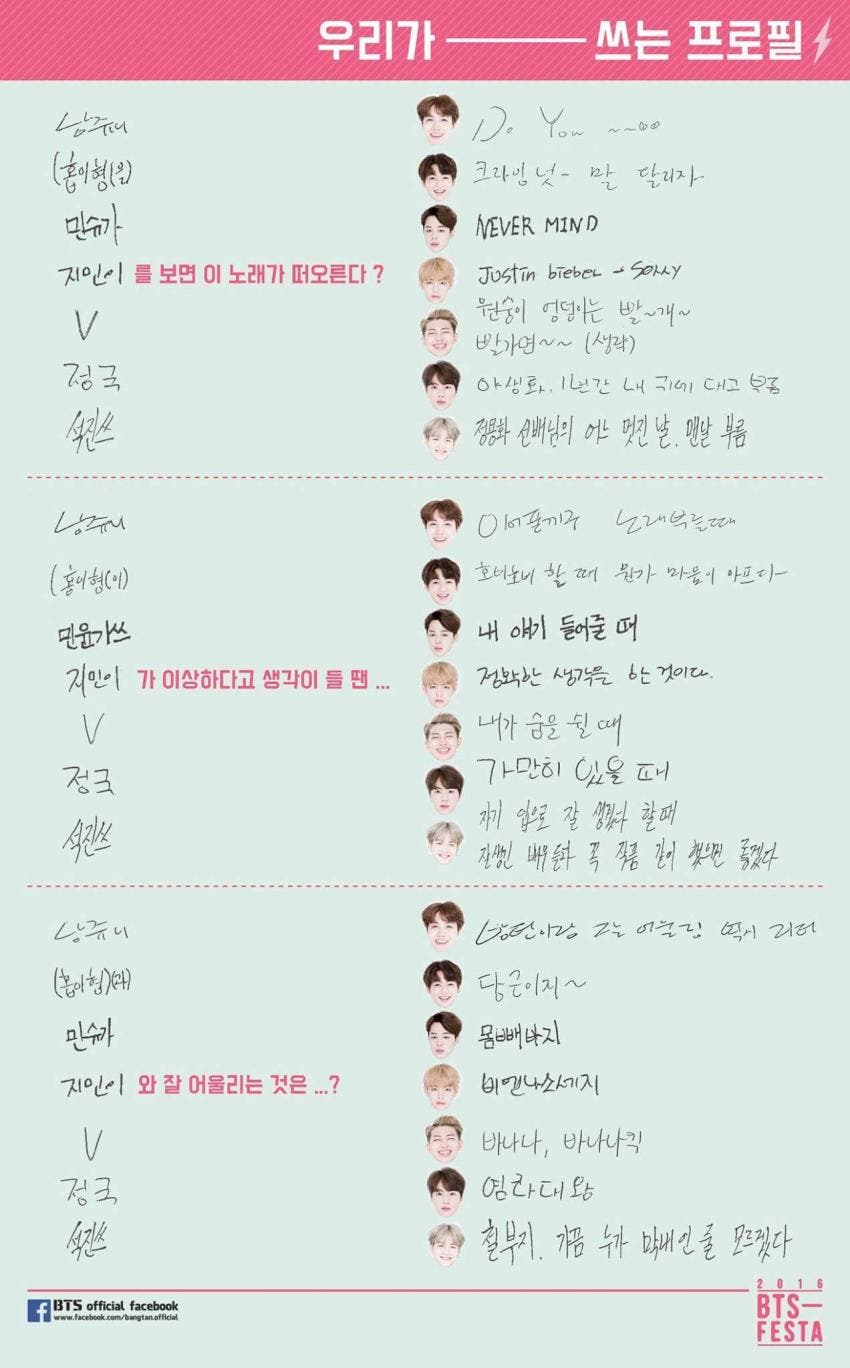 우리가 — 쓰는 프로필
남쥬니 Do You ~~∞
(홉이형(을) 크라잉 넛- 말 달리자
민슈가 NEVER MIND
지민이 를 보면 이 노래가 떠오른다 ? Justin bieber → Sorry
V 원숭이 엉덩이는 빨~개~
빨가면~~ (생략)
정국 야생화. 1년간 내 귀에 대고 부름
석진쓰 정용화 선배님의 어느 멋진 날. 맨날 부름
남쥬니 이어폰끼구 노래부를때
(홉이형(이) 호비호비 할 때 뭔가 마음이 아프다~
민윤기쓰 내 얘기 들어줄 때
지민이 가 이상하다고 생각이 들 땐 ... 정확한 생각을 한 것이다.
V 내가 숨을 쉴 때
정국 가만히 있을 때
석진쓰 자기 입으로 잘 생겼다 할 때
잘생긴 배우분과 꼭 작품 같이 했으면 좋겠다
남쥬니 방탄이랑 그는 어울림 역시 리더
(홉이형)(과) 당근이지~
민슈가 몸빼바지
지민이 와 잘 어울리는 것은 ...? 비엔나소세지
V 바나나, 바나나킥
정국 염라대왕
석진쓰 철부지. 가끔 누가 막내인 줄 모르겠다
BTS official facebook
www.facebook.com/bangtan.official
2016
BTS—
FESTA